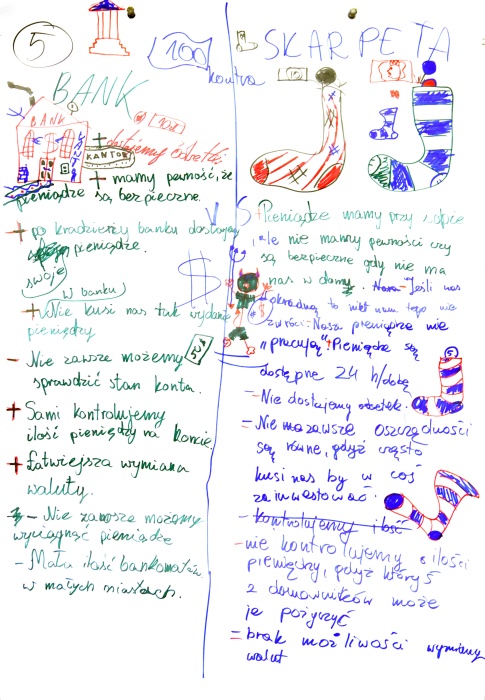 5
100
SKARPETA
kontra
10
BANK
BANK
KANTOR
10zł
+ dostajemy odsetki
KANTOR
+ mamy pewność, że
pieniądze są bezpieczne.
+ po kradzieży banku dostajemy
swoje pieniądze.
w banku
+ Nie kusi nas tak wydanie
pieniędzy
50zł
- Nie zawsze możemy
sprawdzić stan konta.
+ Sami kontrolujemy
ilość pieniędzy na koncie
+ Łatwiejsza wymiana
waluty.
- Nie zawsze możemy
wyciągnąć pieniądze
- Mała ilość bankomatów
w małych miastach.
VS
$
+ Pieniądze mamy przy sobie
- Ale nie mamy pewności czy
są bezpieczne gdy nie ma
nas w domu. - Jeśli nas
okradną to nikt nam tego nie
zwróci - Nasze pieniądze nie
„pracują" + Pieniądze są
dostępne 24 h/dobę
5
- Nie dostajemy odsetek.
- Nie zawsze oszczędności
są równe, gdyż często
kusi nas by w coś
zainwestować.
- kontrolujemy ilość
- nie kontrolujemy ilości
pieniędzy, gdyż któryś
z domowników może
je pożyczyć
= brak możliwości wymiany
walut